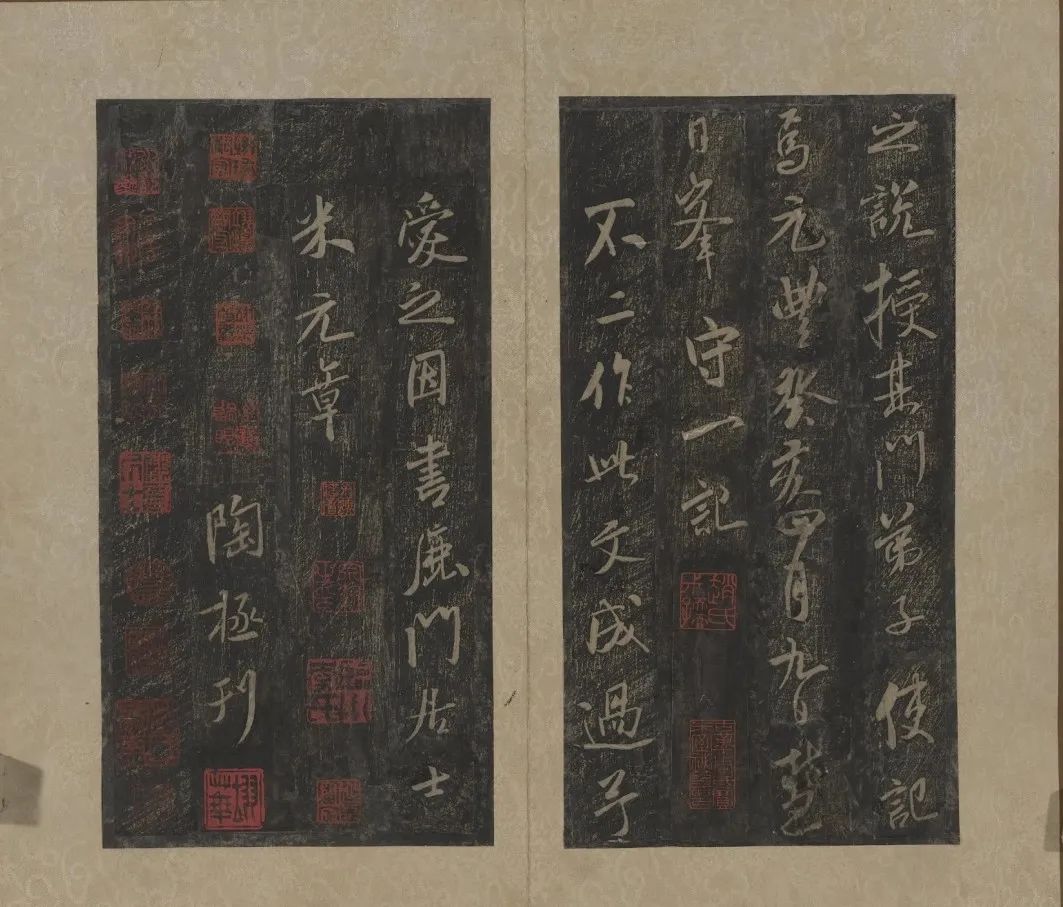 之說授其門弟子使記
焉元豐癸亥四月九日慧
日峯守一記
不二作此文成過予
愛之因書鹿門居士
米元章
陶拯刊